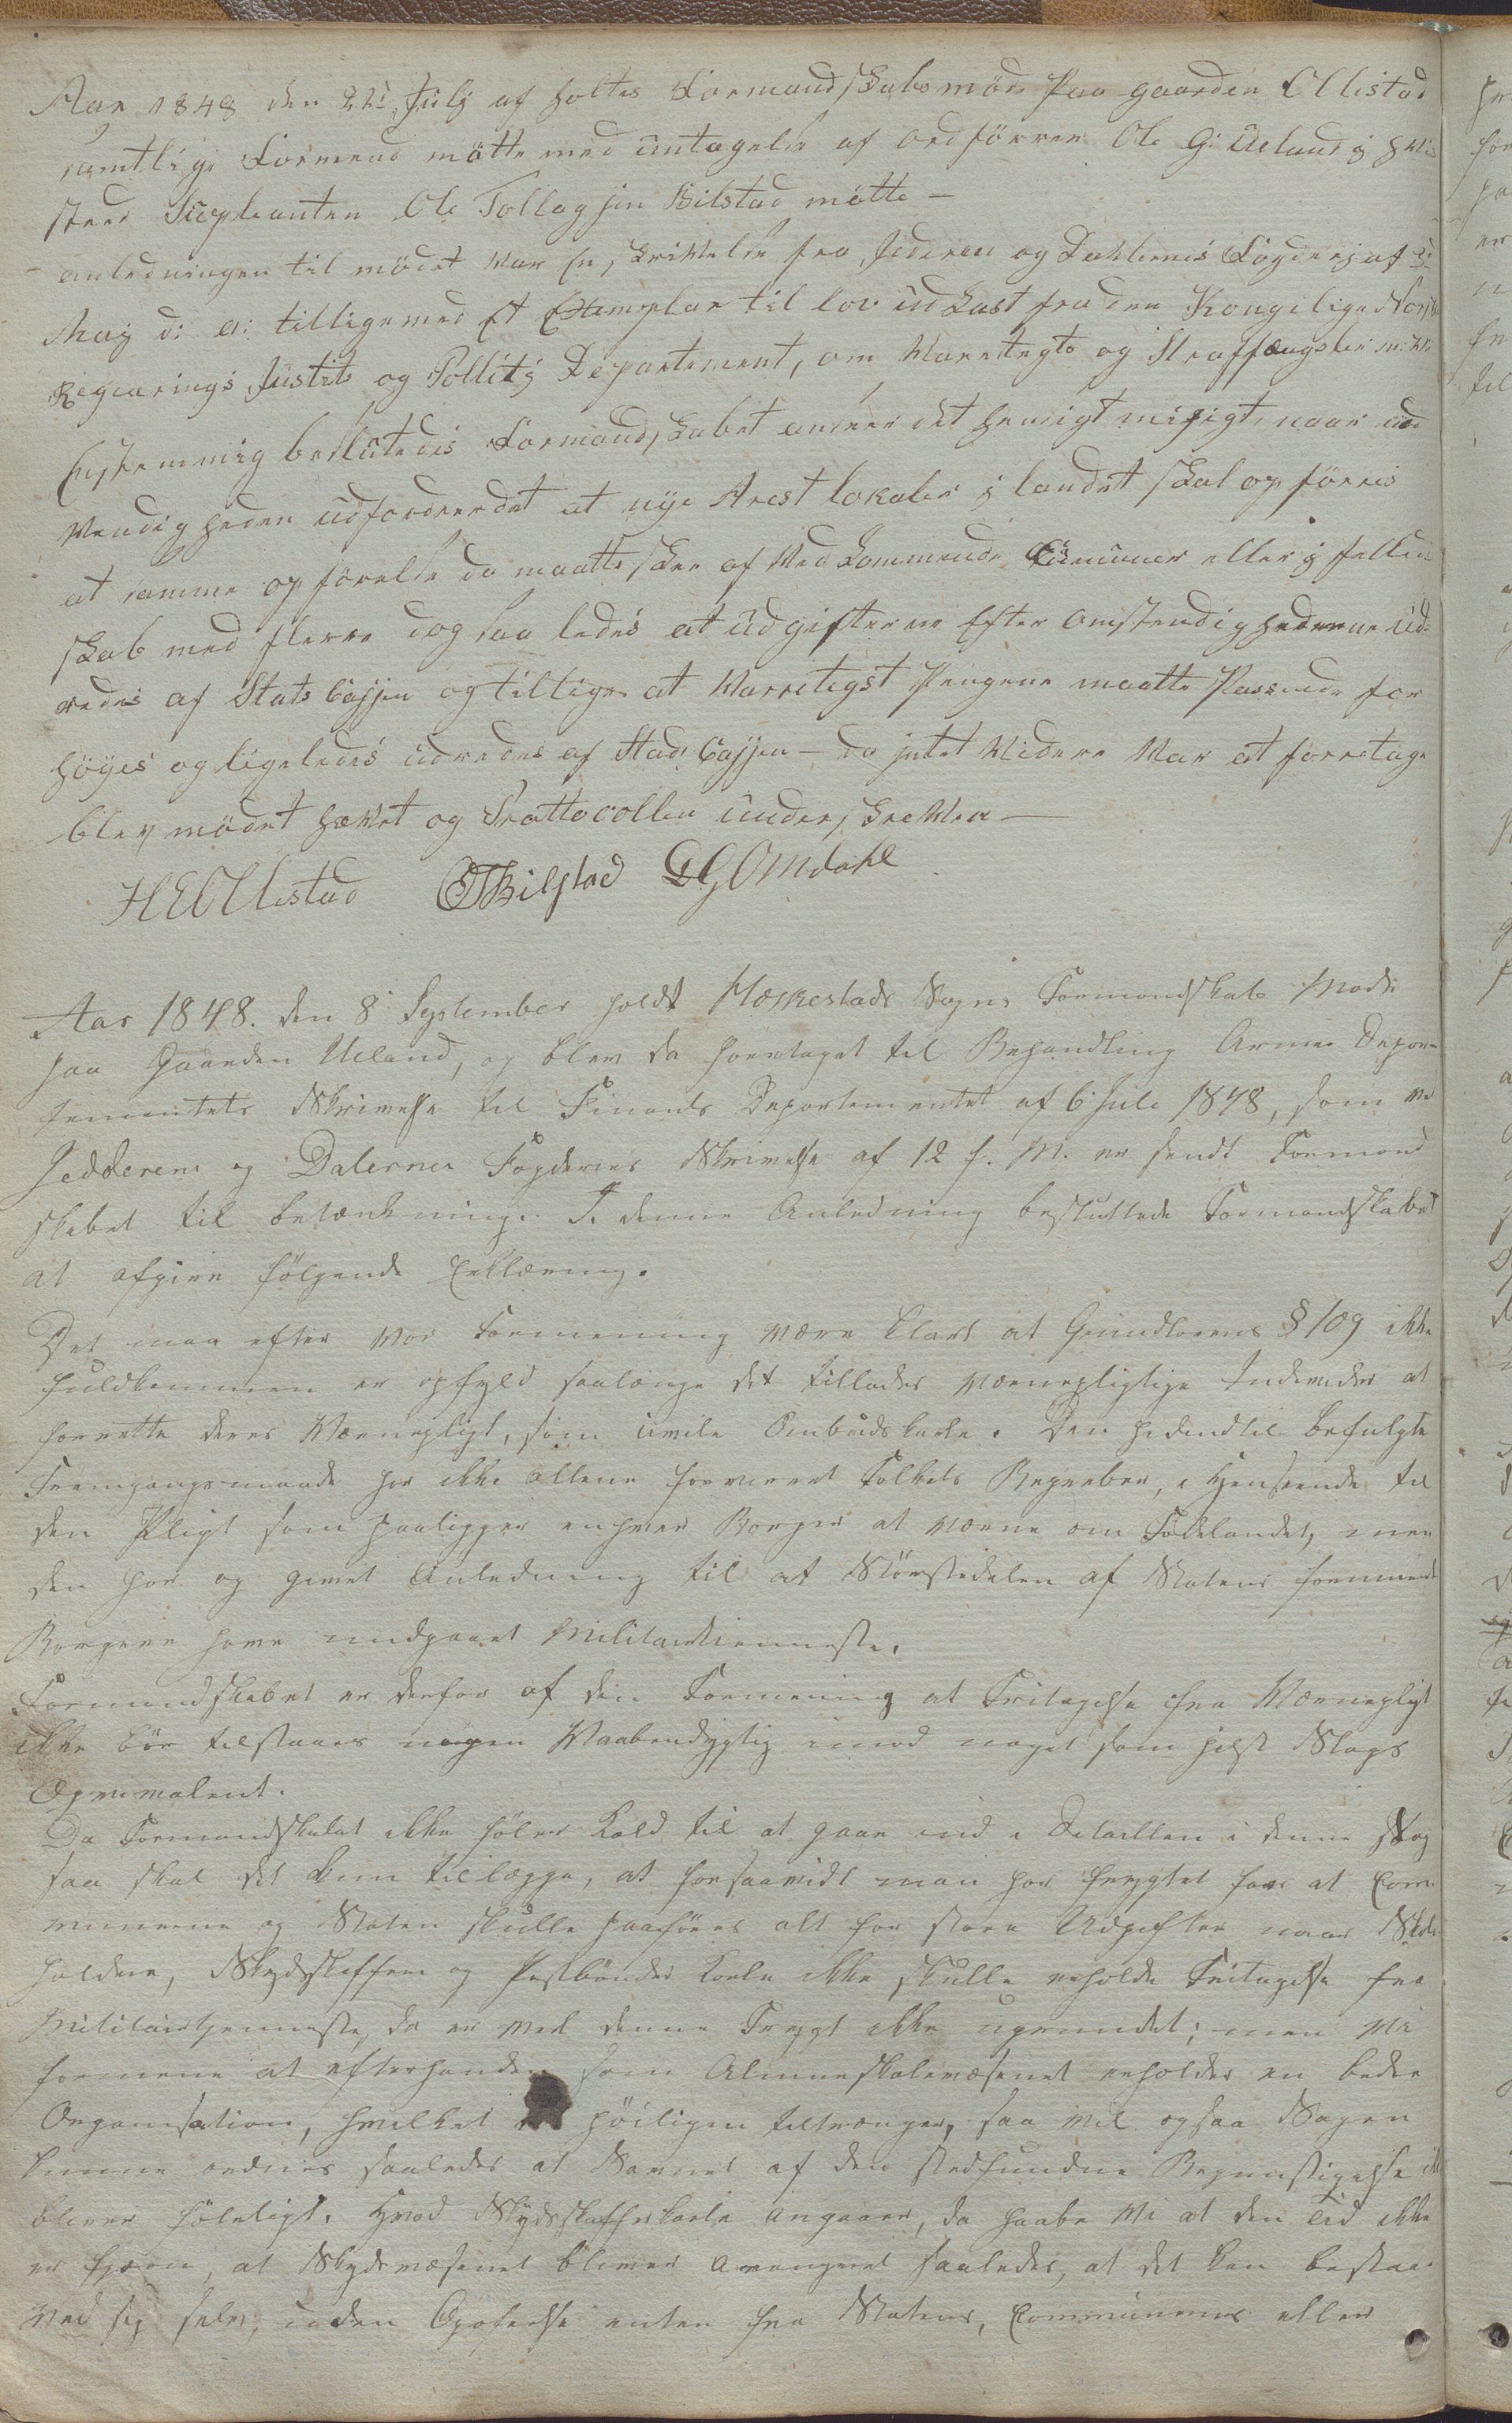 Aar 1848 den 22i Julj af holtes Formandskabsmöde Paa gaarden Ollistad
samtlige Formend mötte med untagelse af ordförren Ole G: Ueland j hvis
sted Supleanten Ole Tollagsen Bilstad mötte —
anledningen til mödet var en skrivelse fra Jederen og Dahlernes Fogderj af
Maj d: a: tilligemed Et Exemplar til lov udkast fra den Kongelige Norske
Regieerings Justits og Pollitj Departement, om Varetegts og Straffængsler m: v:
Enstemmig beslutedes Formandskabet anseer det hensigtmesigt, naar nød
vendigheden udfordrer det at nye Arest lokaler j landet skal opförres
at samme opförelse da maatte skee af vedkommende Comuner eller j felles
skab med flerre dog saa ledes at udgifterne efter omstendighederne ud
redes af Stats Cassen og tillige at Varretegst Pengene maatte Passende for
höyes og ligeledes udredes af Stads Cassen — da jntet videre var at forretage
blev mödet hævet og Prottocollen underskreven —
H E Ollestad OTBilstad GGOmdahl
Aar 1848. den 8de September holdt Heskestads Sogns Formandskab Møde
paa Gaarden Ueland, og blev da foretaget til Behandling Arme Depar-
tementets Skrivelse til Finants Departementet af 6 Juli 1848, som ved
Jedderens og Dalernes Fogderies Skrivelse af 12 f. M. er sendt Formand
skabet til betænkning. I denne Anledning besluttede Formandskabet
at afgive følgende Erklæring.
Det maa efter vor Formening være klart at Grundlovens § 109 ikke
fuldkommen er opfyld saalænge det tillades værnepligtige Individer at
forrette deres Værnepligt, som civile Ombudskarle. Den hidindtil befulgte
Fremgangsmaade har ikke allene forvirret Folkets Begreber, i Henseende til
den Pligt som paaligger enhver Borger at værne om Fødelandet, men
den har og givet Anledning til at Størstedelen af Statens formuende
Borgere have undgaaet Militærtienneste.
Formandskabet er derfor af den Formening at Fritagelse fra Værnepligt
ikke bör tilstaaes nogen Vaabendygtig imod noget som helst Slags
Æqvivalent.
Da Formandskabet ikke føler Kald til at gaae ind i Detaillen i denne Sag
saa skal det kun tillægge, at forsaavidt man har frygtet for at Com
munerne og Staten skulle paaføres alt for store Udgifter naar Skyds
holdere, Skydsskaffere og Postbønder karle ikke skulle erholde Fritagelse fra
Militairtjenneste, da er vel denne Frygt ikke ugrundet; men vi
formene at efterhanden som Almueskolevæsenet erholder en bedre
Organisation, hvilket høiligen tiltrænges, saa vil ogsaa Sagen
kunne ordnes saaledes at Savnet af den stedfundne Begunstigelse ikke
bliver føleligt. Hvad Skydsskafferkarle angaaer, da haabe vi at den Tid ikke
er fjern, at Skydsvæsenet bliver arrangeret saaledes, at det kan bestaae
ved sig selv, uden Opofrelse enten fra Statens, Communernes eller